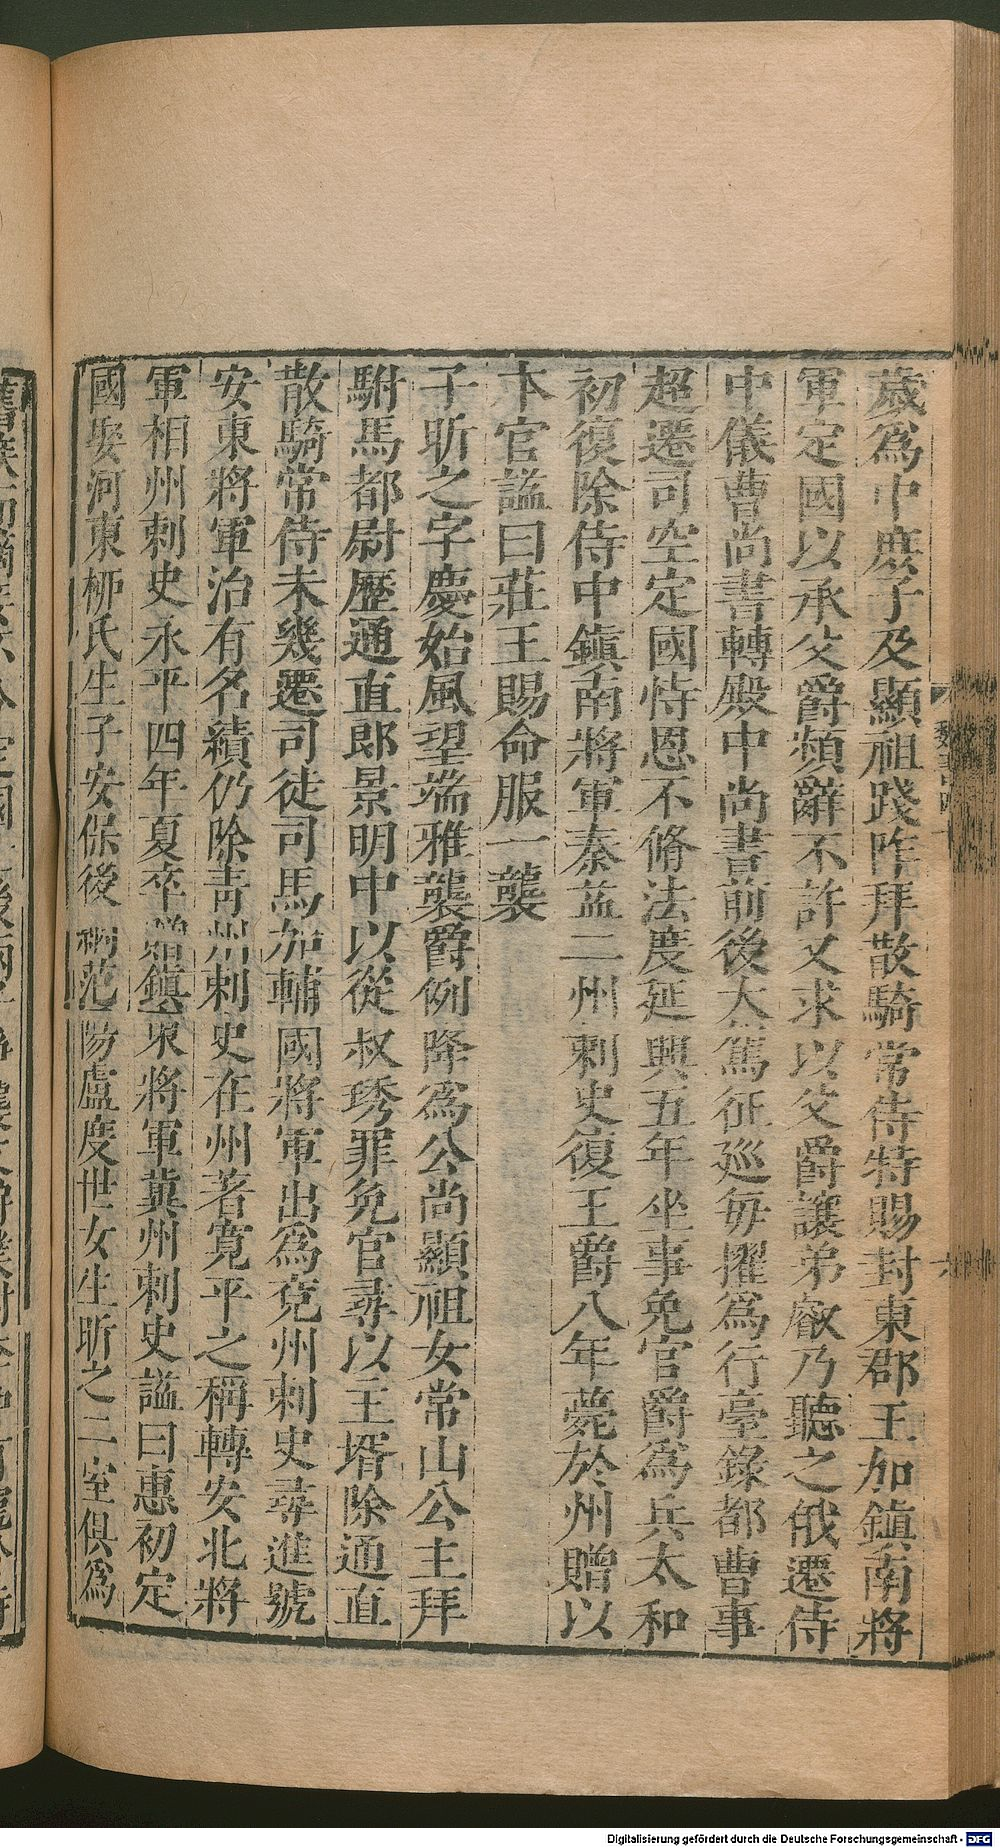 歲爲中庶子及顯祖踐阼拜散騎常侍特賜封東郡王加鎭南將
軍定國以承父爵頻辭不許又求以父爵讓弟叡乃聽之俄遷侍
中儀曹尚書轉殿中尚書前後大駕征巡每擢爲行臺錄都曹事
超遷司空定國恃恩不脩法度延興五年坐事免官爵爲兵太和
初復除侍中鎭南將軍秦益二州刺史復王爵八年薨於州贈以
本官諡曰莊王賜命服一襲
子昕之字慶始風望端雅襲爵例降爲公尚顯祖女常山公主拜
駙馬都尉歷通直郎景明中以從叔琇罪免官尋以主壻除通直
散騎常侍未幾遷司徒司馬加輔國將軍出爲兗州刺史尋進號
安東將軍治有名績仍除青州刺史在州著寬平之稱轉安北將
軍相州刺史永平四年夏卒贈鎭東將軍冀州刺史諡曰惠初定
國娶河東柳氏生子安保後納范陽盧度世女生昕之二室俱爲
Digitalisierung gefördert durch die Deutsche Forschungsgemeinschaft - DFG